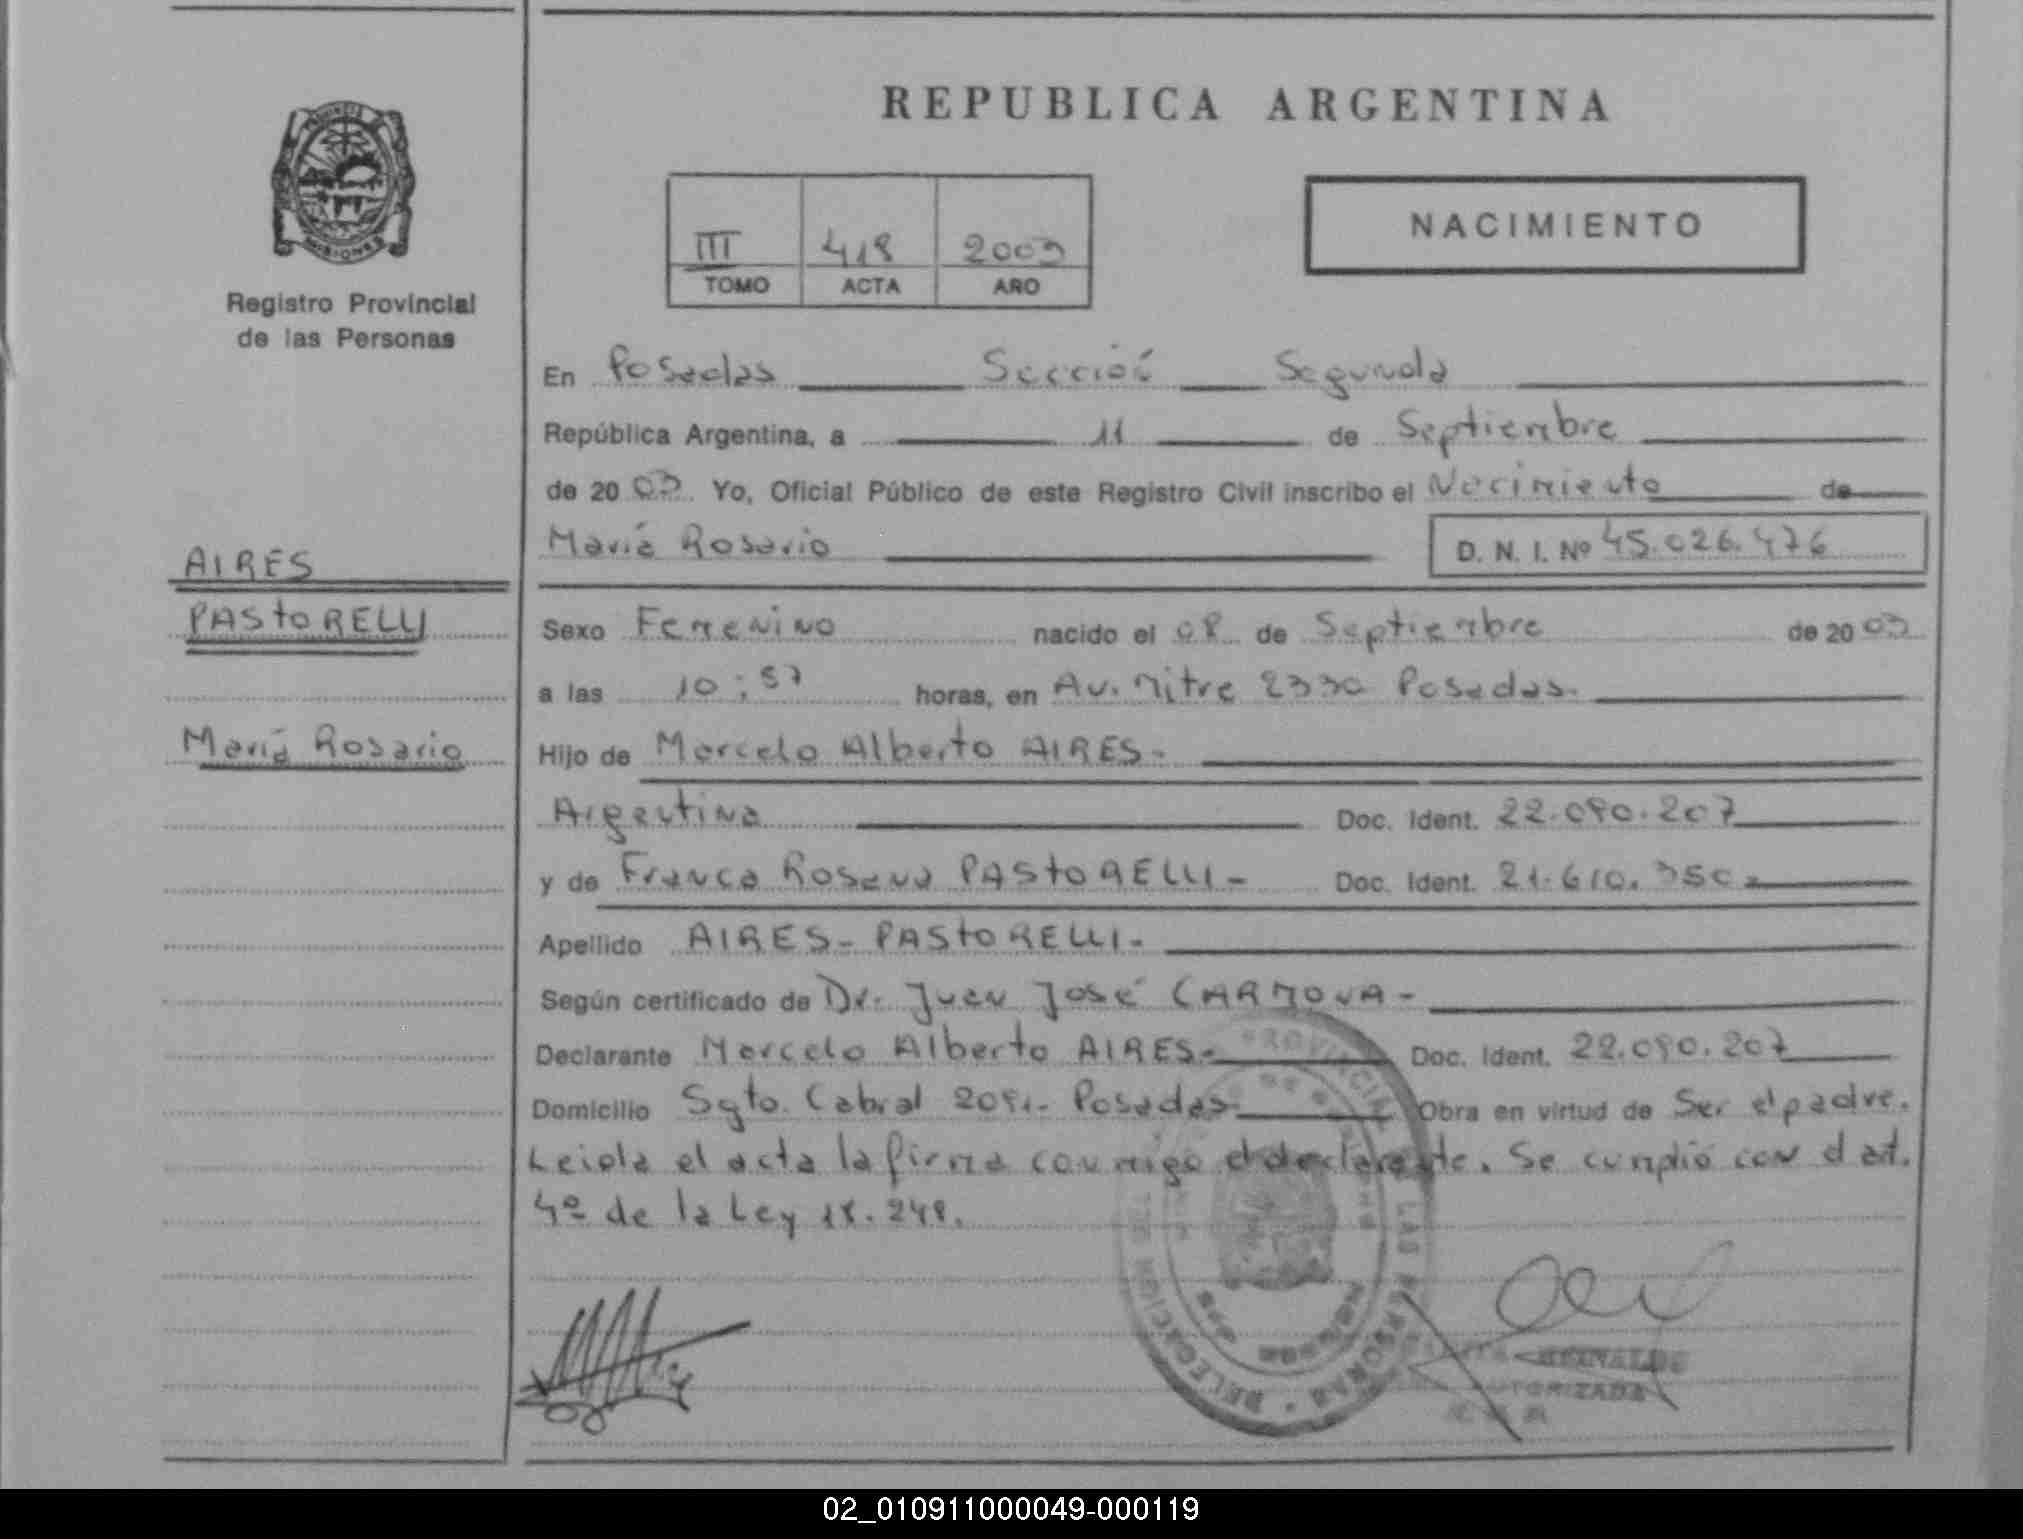 REPUBLICA ARGENTINA
NACIMIENTO
III 418 2003
TOMO ACTA AÑO
PROVINCIA DE
MISIONES
Registro Provincial
de las Personas
AIRES
PASTORELLI
María Rosario
En Posadas Sección Segunda
República Argentina, a 11 de Septiembre
de 2003. Yo, Oficial Público de este Registro Civil inscribo el Nacimiento de
María Rosario D. N. I. Nº 45.026.476
Sexo Femenino nacido el 08 de Septiembre de 2003
a las 10:57 horas, en Av. Mitre 2330 Posadas.
Hijo de Marcelo Alberto AIRES-
Argentina Doc. Ident. 22.090.207
y de Franca Rosana PASTORELLI- Doc. Ident. 21.610.350-
Apellido AIRES- PASTORELLI-
Según certificado de Dr. Juan José CARMONA-
Declarante Marcelo Alberto AIRES- Doc. Ident. 22.090.207
Domicilio Sgto. Cabral Posadas Obra en virtud de Ser el padre.
Leida el acta la firma conmigo el declarante. Se cumplió con el art.
4º de la Ley 18.248.
PROVINCIAL DE LAS PERSONAS
DELEGACION
AUTORIZADA
02_010911000049-000119